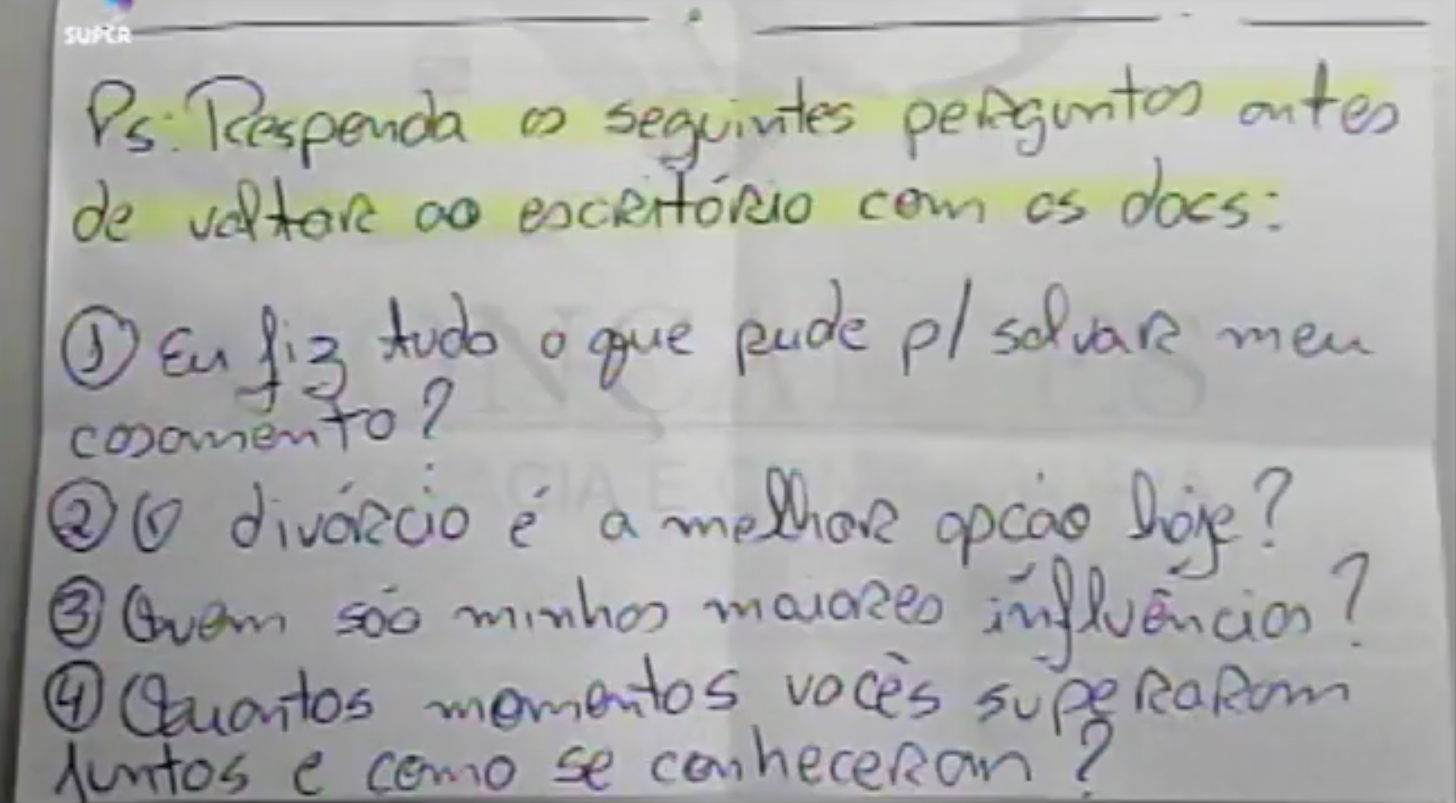 SUPER
Ps: Responda as seguintes perguntas antes
de voltar ao escritório com os docs:
① Eu fiz tudo o que pude p/ salvar meu
casamento?
② O divórcio é a melhor opção hoje?
③ Quem são minhas maiores influências?
④ Quantos momentos vocês superaram
juntos e como se conheceram?